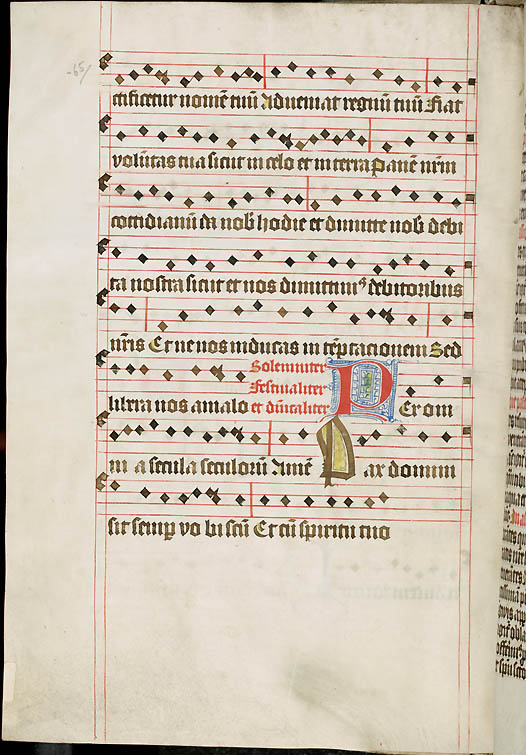 65
ctificetur nomē tuū Adueniat regnū tuū Fiat
volūtas tua sicut in celo et in terra Panē nr̄m
cottidianū da nob̄ hodie et dimitte nob̄ debi
ta nostra sicut et nos dimittimꝰ debitoribus
nr̄is Et ne nos inducas in tēptationem Sed
Solemniter
Festiualiter
libera nos a malo et dn̄icaliter Per om
nia secula seculorū Amē Pax domini
sit semꝑ vobiscū Et cū spiritu tuo